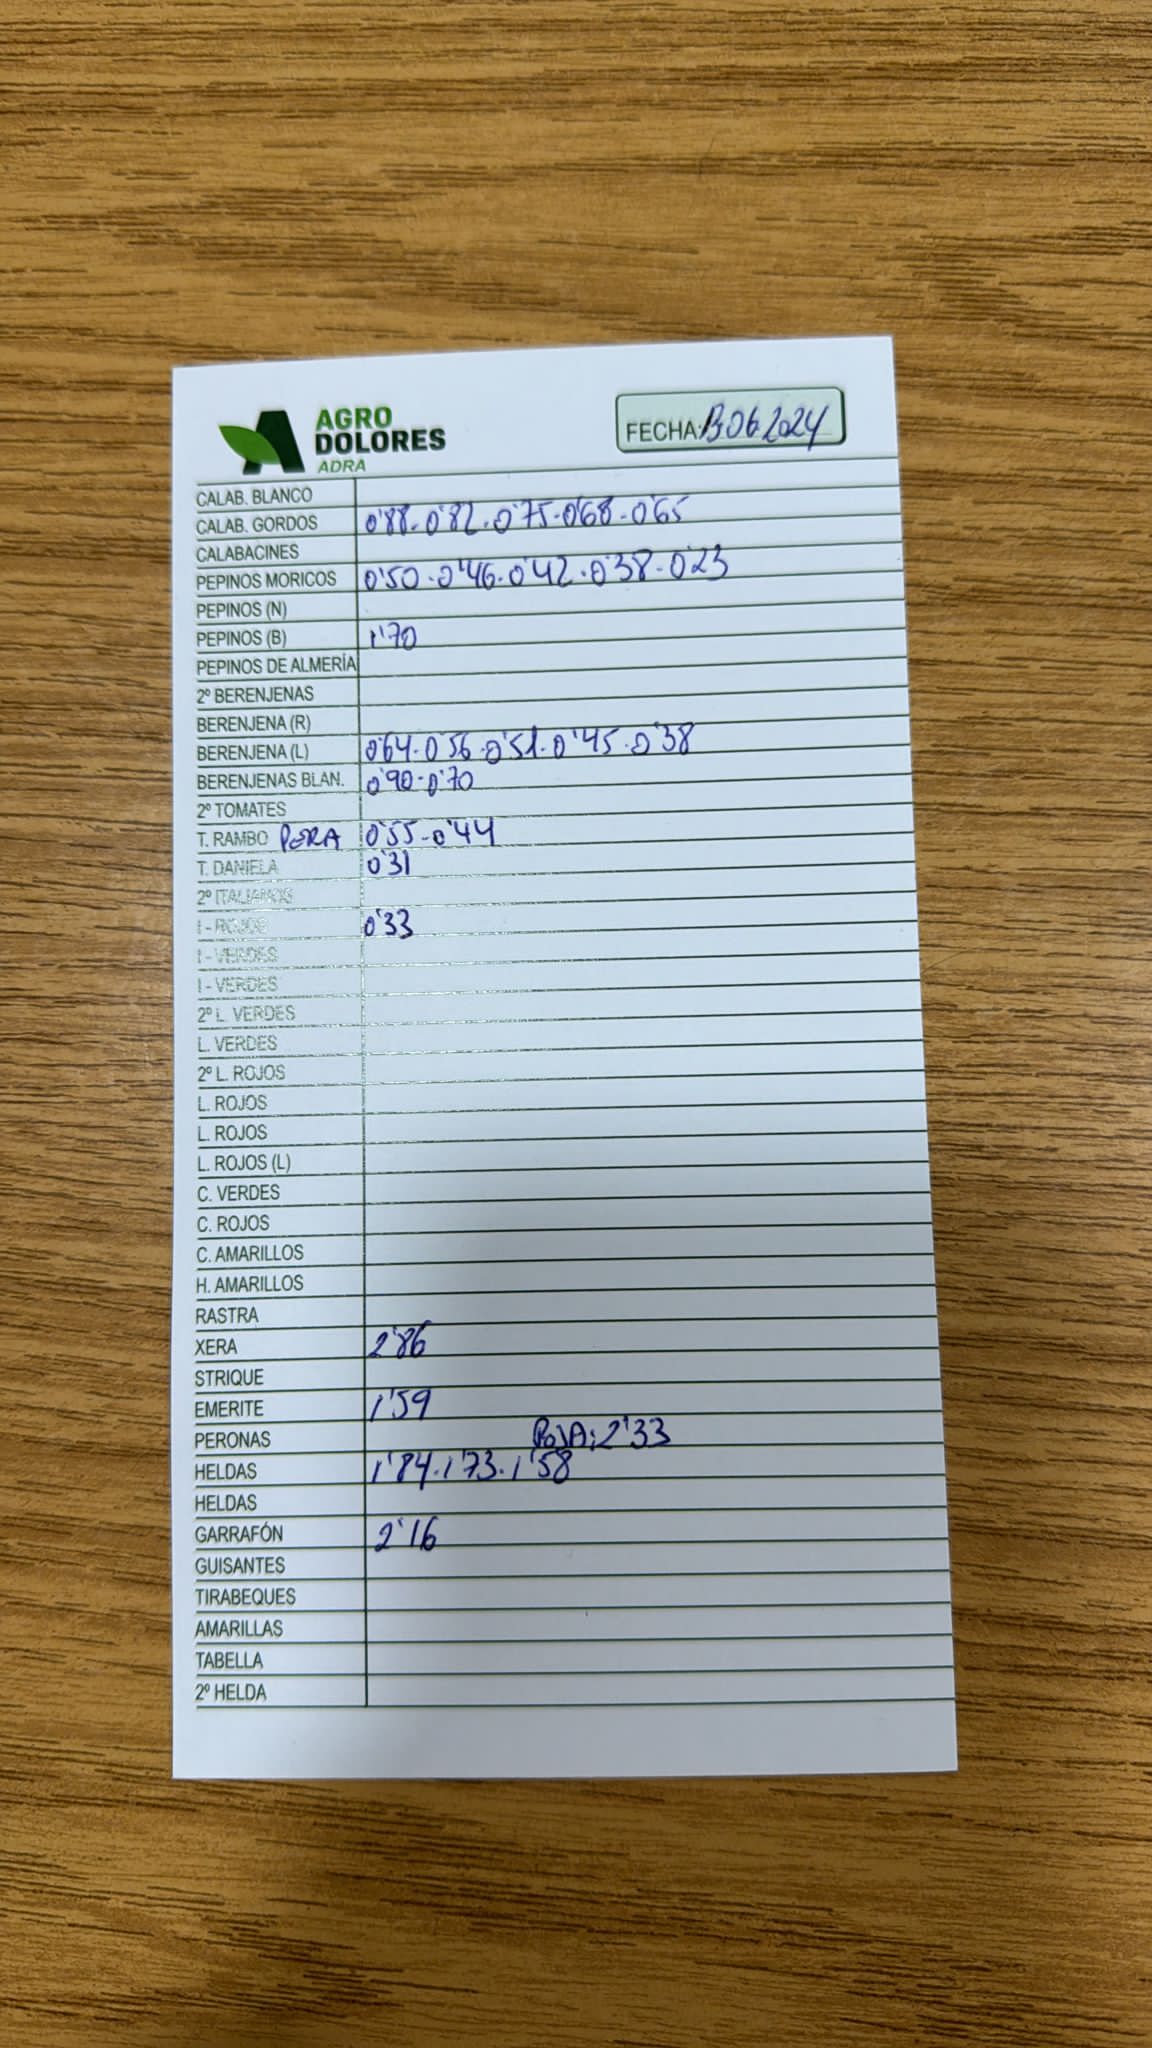 AGRO
DOLORES
ADRA
FECHA: 13.06.2024
CALAB. BLANCO
CALAB. GORDOS 0'88-0'82-0'75-0'68-0'65
CALABACINES
PEPINOS MORICOS 0'50-0'46-0'42-0'38-0'23
PEPINOS (N)
PEPINOS (B) 1'70
PEPINOS DE ALMERÍA
2º BERENJENAS
BERENJENA (R)
BERENJENA (L) 0'64-0'56-0'51-0'45-0'38
BERENJENAS BLAN. 0'90-0'70
2º TOMATES
T. RAMBO PERA 0'55-0'44
T. DANIELA 0'31
2º ITALIANOS
I - ROJOS 0'33
I - VERDES
I - VERDES
2º L. VERDES
L. VERDES
2º L. ROJOS
L. ROJOS
L. ROJOS
L. ROJOS (L)
C. VERDES
C. ROJOS
C. AMARILLOS
H. AMARILLOS
RASTRA
XERA 2'86
STRIQUE
EMERITE 1'59
PERONAS ROJA: 2'33
HELDAS 1'84-1'73-1'58
HELDAS
GARRAFÓN 2'16
GUISANTES
TIRABEQUES
AMARILLAS
TABELLA
2º HELDA